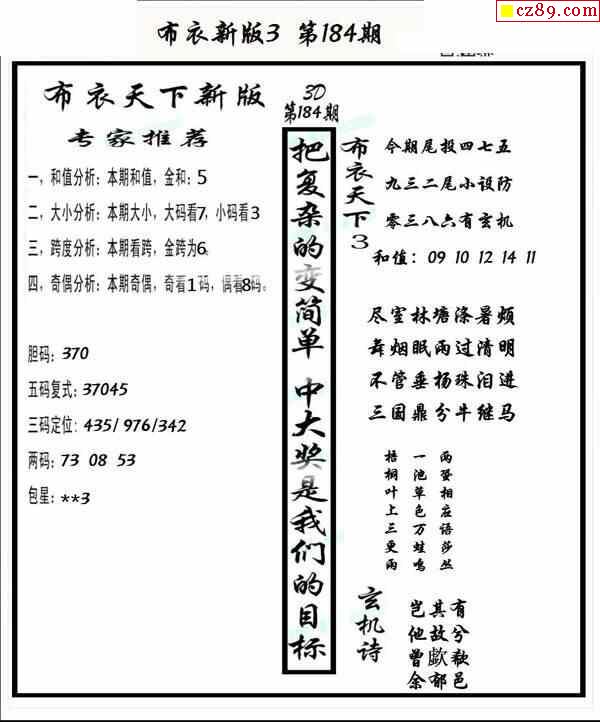 cz89.com
布衣新版3 第184期
布衣天下新版
专家推荐
一，和值分析：本期和值，金和：5
二，大小分析：本期大小，大码看7，小码看3
三，跨度分析：本期看跨，金跨为6。
四，奇偶分析：本期奇偶，奇看1码，偶看8码。
胆码：370
五码复式：37045
三码定位：435/976/342
两码：73 08 53
包星：**3
3D
第184期
把复杂的变简单 中大奖是我们的目标
布衣天下3
今期尾投四七五
九三二尾小设防
零三八六有玄机
和值：09 10 12 14 11
尽室林塘涤暑烦
舞烟眠雨过清明
不管垂杨珠泪进
三国鼎分牛继马
两蛩相应语莎丛
一池草色万蛙鸣
梧桐叶上三更雨
玄机诗
有兮欷邑
其故歔郁
岂他曾余